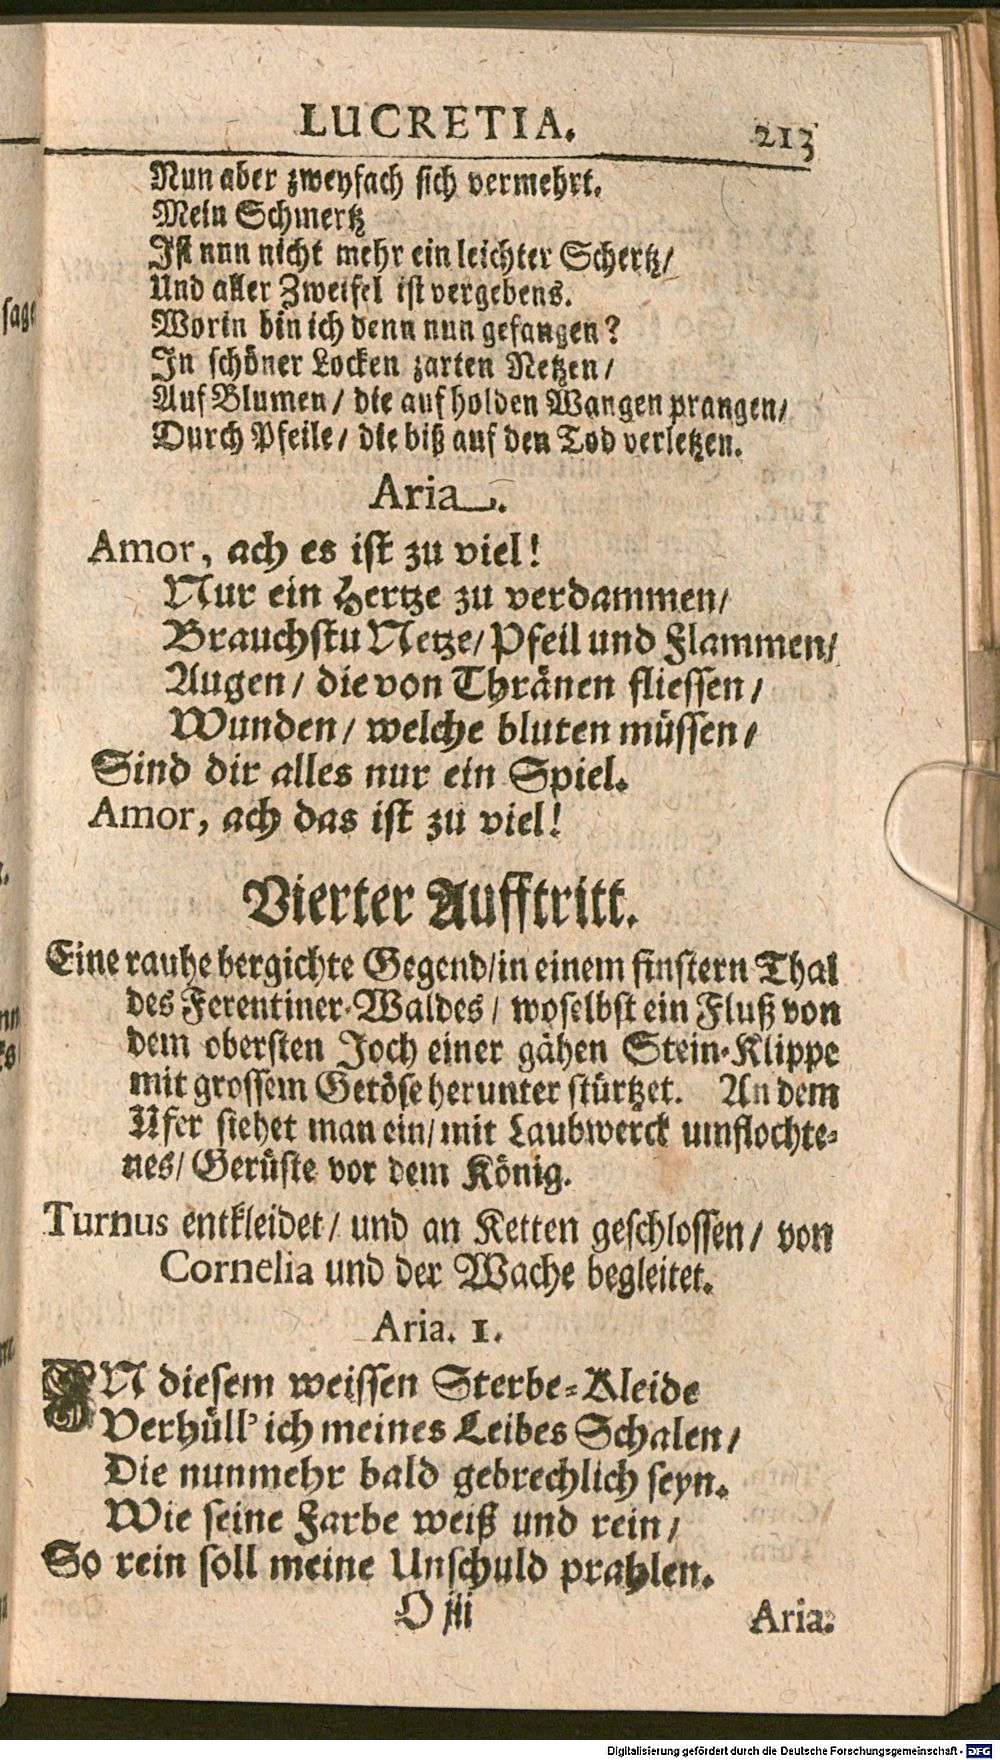 LUCRETIA. 213
Nun aber zweyfach sich vermehrt.
Mein Schmertz
Ist nun nicht mehr ein leichter Schertz/
Und aller Zweifel ist vergebens.
Worin bin ich denn nun gefangen?
In schöner Locken zarten Netzen/
Auf Blumen/ die auf holden Wangen prangen/
Durch Pfeile/ die biß auf den Tod verletzen.
Aria.
Amor, ach es ist zu viel!
Nur ein Hertze zu verdammen/
Brauchstu Netze/ Pfeil und Flammen/
Augen/ die von Thränen fliessen/
Wunden/ welche bluten müssen/
Sind dir alles nur ein Spiel.
Amor, ach das ist zu viel!
Vierter Aufftritt.
Eine rauhe bergichte Gegend/ in einem finstern Thal
des Ferentiner-Waldes/ woselbst ein Fluß von
dem obersten Joch einer gähen Stein-Klippe
mit grossem Getöse herunter stürtzet. An dem
Ufer stehet man ein/ mit Laubwerck umflochte-
nes/ Gerüste vor dem König.
Turnus entkleidet/ und an Ketten geschlossen/ von
Cornelia und der Wache begleitet.
Aria. 1.
IN diesem weissen Sterbe-Kleide
Verhüll' ich meines Leibes Schalen/
Die nunmehr bald gebrechlich seyn.
Wie seine Farbe weiß und rein/
So rein soll meine Unschuld prahlen.
O iii Aria.
sage
Digitalisierung gefördert durch die Deutsche Forschungsgemeinschaft - DFG